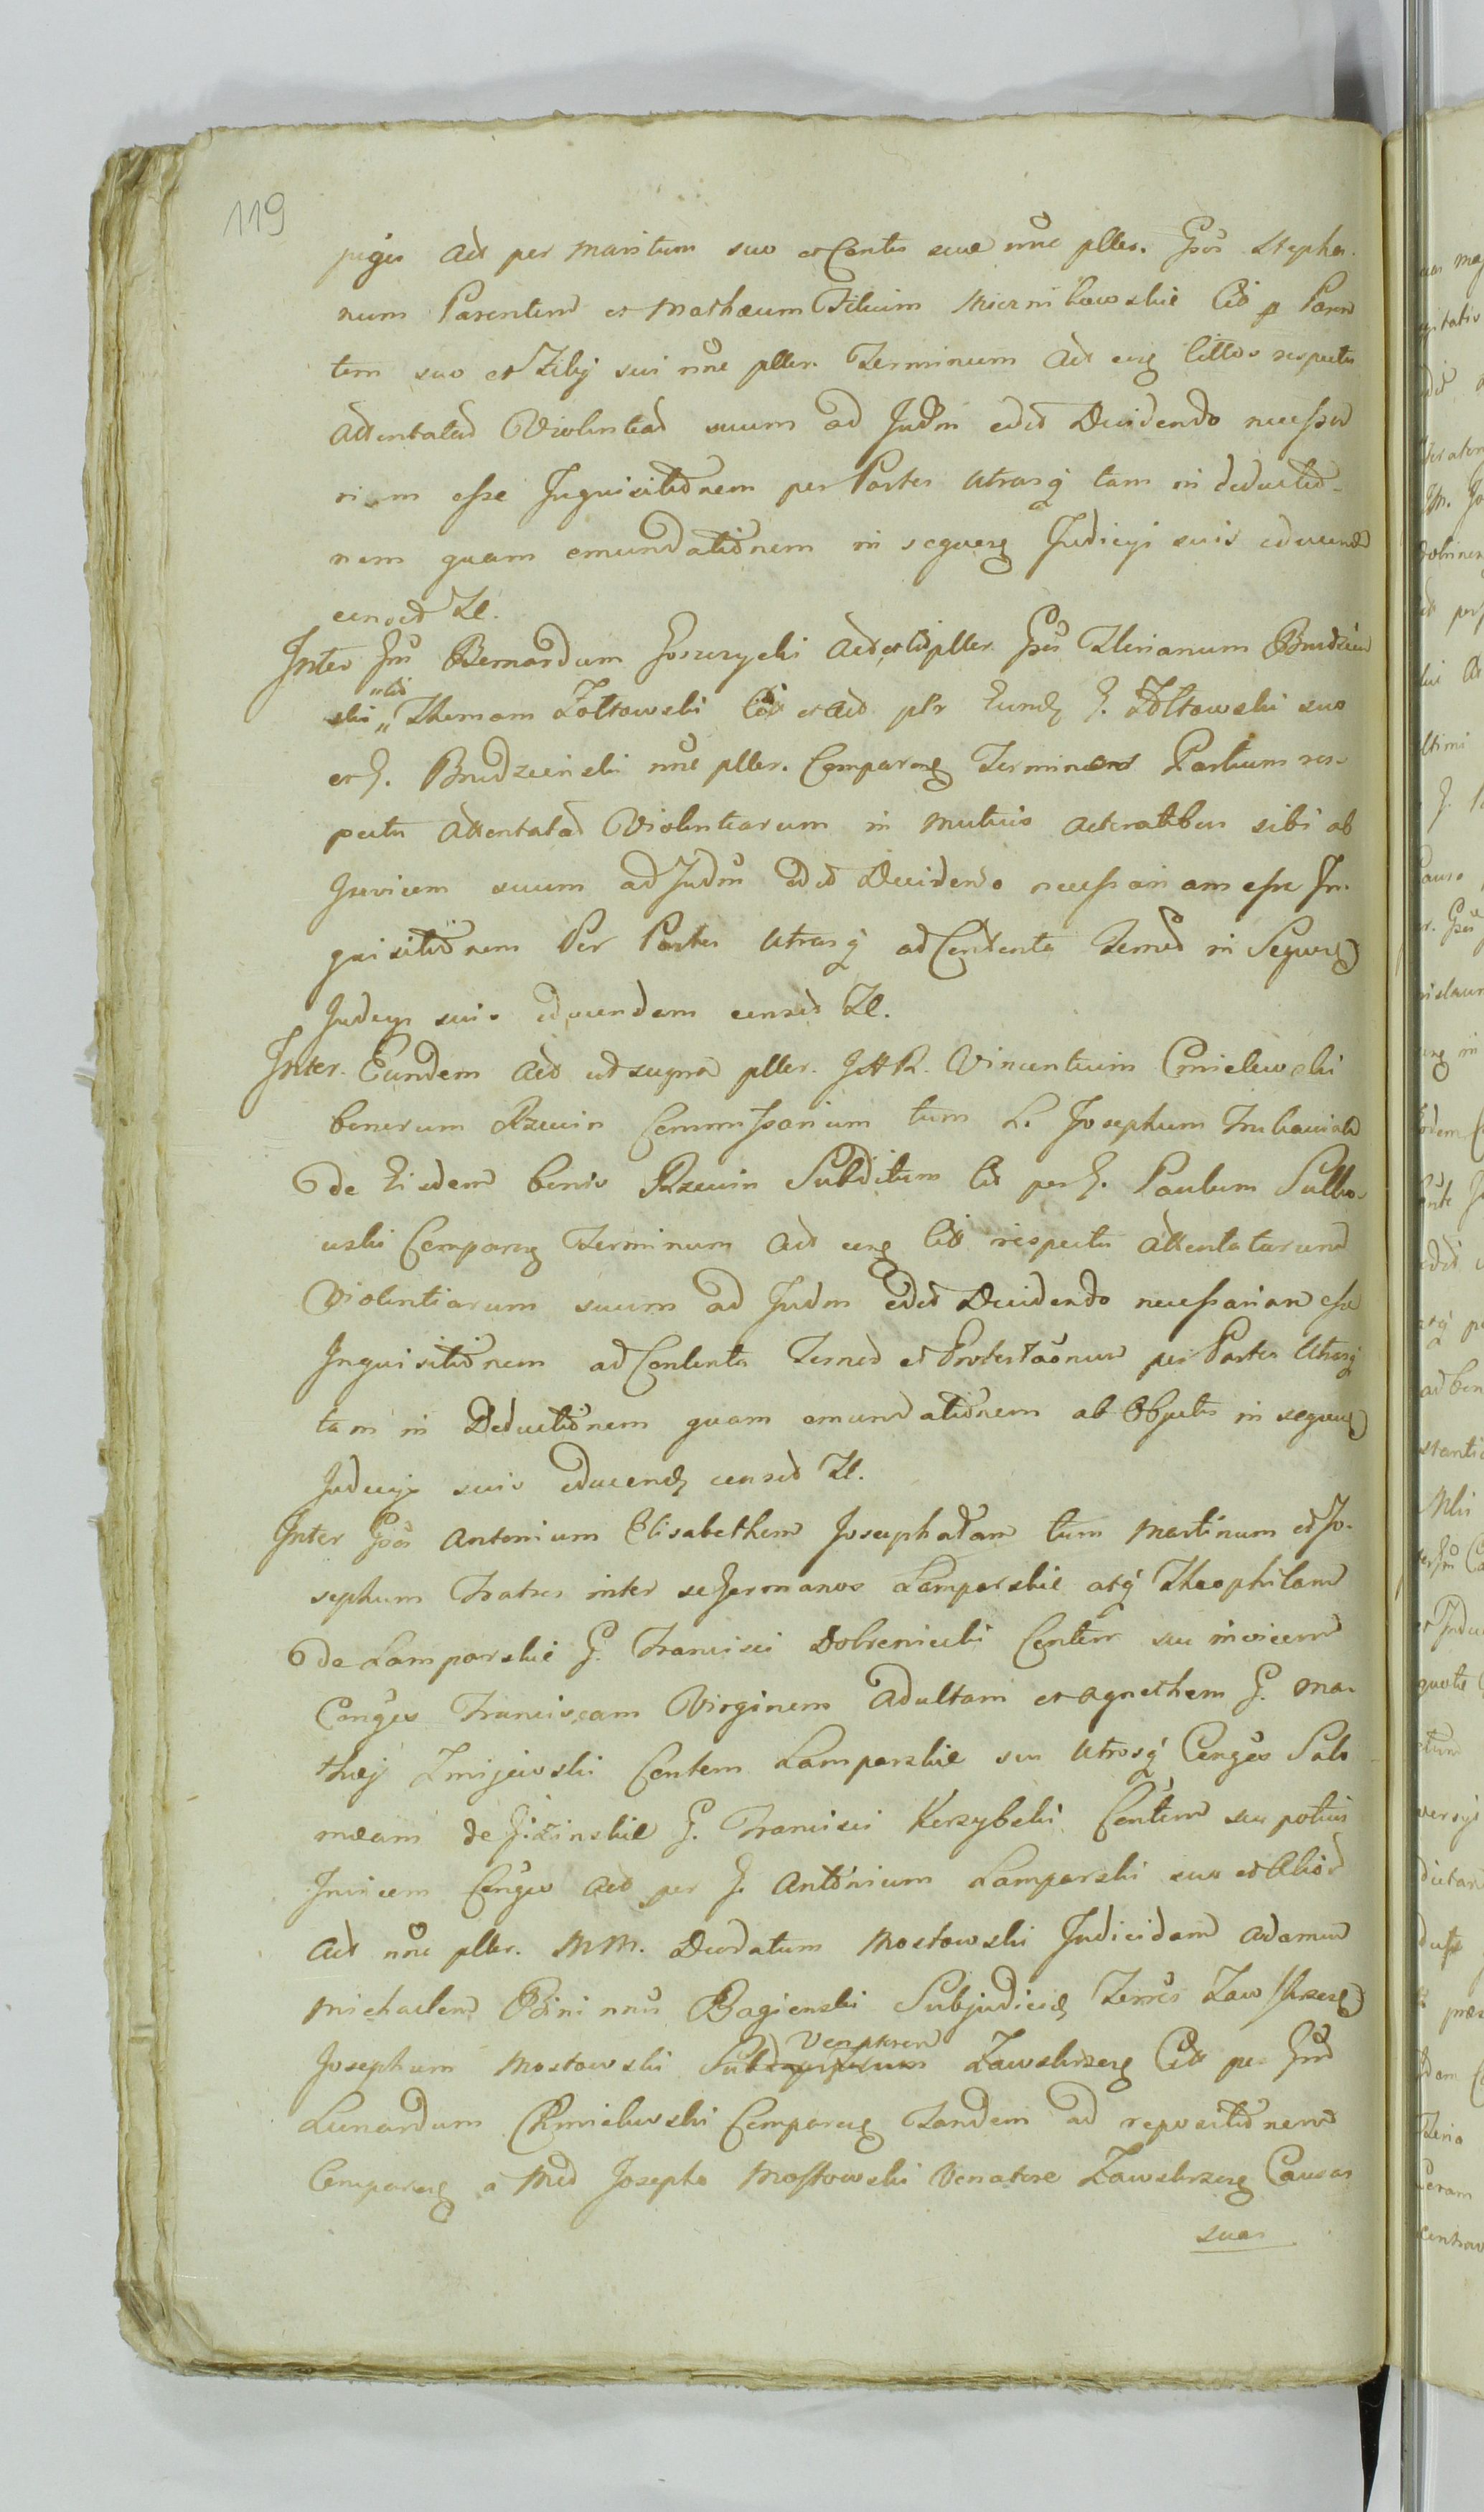 119
juges Act per Maritum suo et Contis suæ nõe pller. Gsos Stepha
num Parentem et Mathæum Filium Miernikowskie Cit p Paren
tem suo et Filij sui nõe pller. Terminum Act eng Cittos respectu
Attentatad Violentiad suum ad Judm edid Decidendo necessa
riam esse Inquisitiõnem per Partes Utrasq tam in deductiõ-
nem quam emundatiõnem in sequeng Judicys suis educend
censed Ztt.
Inter Gm Bernardum Goszczycki Act et Cit pller. Gsos Florianum Budziin
ski "Cit" Thomam Zoltowski Cit et Act plr Eund G. Zoltowski suo
et G. Budzcinski nõe pller. Compareng Terminum Partium res-
pectu Attentatad Violentiarum in mutuis actoratibus sibi ab
Invicem suum ad Judm edid Decidendo necessariam esse In-
quisitiõnem Per Partes Utrasq ad Contenta Termed in Sequeng
Judicys suis educendam censed Ztt.
Inter Eundem Act ut supra pller. Vincentium Cmielewski
bonorum Rzewin Commissarium tum L. Josephum
de Eisdem bonis Rzewin Subditum Cit per G. Paulum Sulko
wski Compareng Terminum Act eng Citt respectu attentatarum
Violentiarum suum ad Judm edid Decidendo necessariam esse
Inquisitiõnem ad Contenta Termed et Protestaõnum per Partes Utrasq
tam in Deductiõnem quam emundatiõnem ab Objectis in sequeng
Judicys suis educend censed Ztt.
Inter Gsos Antonium Elisabetham Josephatam tum Martinum et Jo-
sephum Fratres inter se Germanos Lamparskie atq Theophilam
de Lamparskie G. Francisci Dobrenicki Contem seu invicem
Conges Franciscam Virginem adultam et Agnethem G. Ma-
thæj Zmijewski Contem Lamparskie seu Utrosq Conges Salo
meam de Gizinskie G. Francisci Kerzybski Contem seu potius
Invicem Conges Act per G. Antonium Lamparski suo et Aliod
Act nõe pller. MM. Deodatum Mostowski Judicidam Adamum
Michaelem Bini nnis Bagienski Subjudicid Terres Zawskrzeng
Josephum Mostowski Venatorem Zawskrzeng Citt per Gm
Leonardum Chmielewski Compareng Tandem ad repositiõnem
Compareng a Med Josepho Mostowski Venatore Zawskrzeng Causas
suas